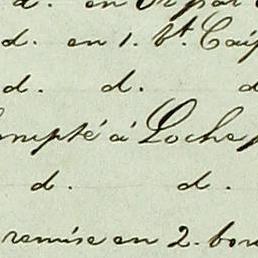 d. en
d. en 1. bt. Caiss
d. d. d
compté à Loche
d. d.
remise en 2. bor